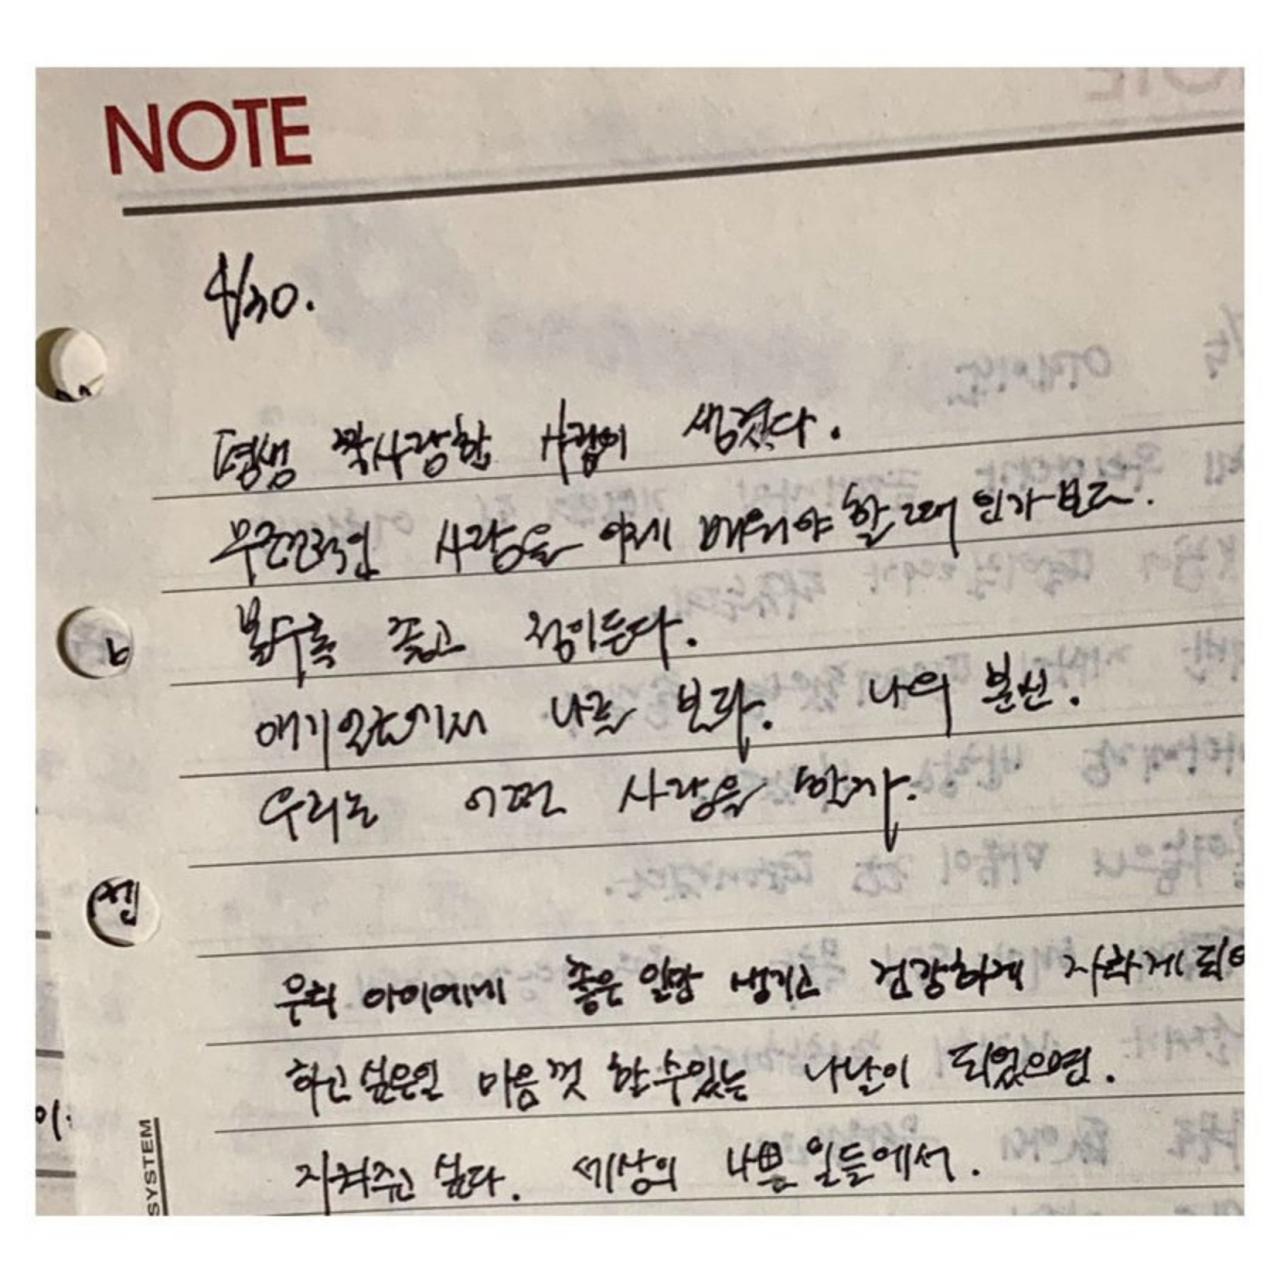 NOTE
4/30.
평생 짝사랑할 사람이 생겼다.
무조건적인 사랑을 이제 배워야 할 때 인가보다.
볼수록 좋고 정이든다.
애기 얼굴에서 나를 본다. 나의 분신.
우리는 어떤 사랑을 할까.
우리 아이에게 좋은 일만 생기고 건강하게 자라게 되어
하고 싶은일 마음껏 할 수 있는 나날이 되었으면.
지켜주고 싶다. 세상의 나쁜 일들에서.
SYSTEM